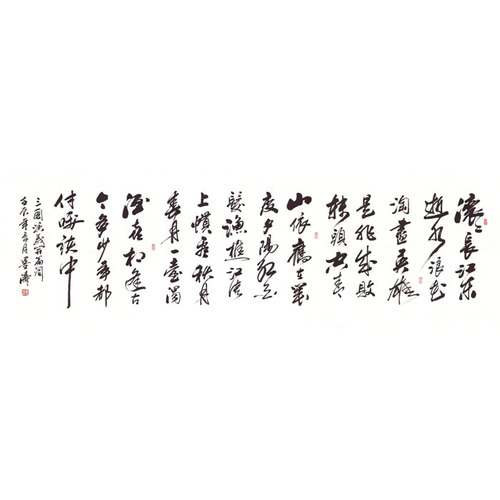 滾々長江東
逝水浪花
淘盡英雄
是非成敗
轉頭空青
山依舊在幾
度夕陽紅白
髮漁樵江渚
上慣看秋月
春風一壺濁
酒喜相逢古
今多少事都
付笑談中
三國演義開篇詞
壬辰年月